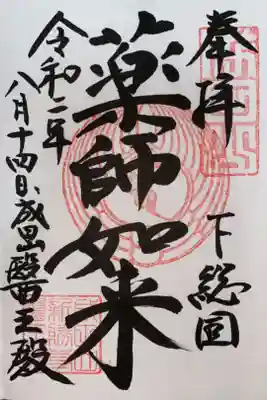 奉拝 下総国
薬師如来
令和二年
八月十四日 成田山醫王殿